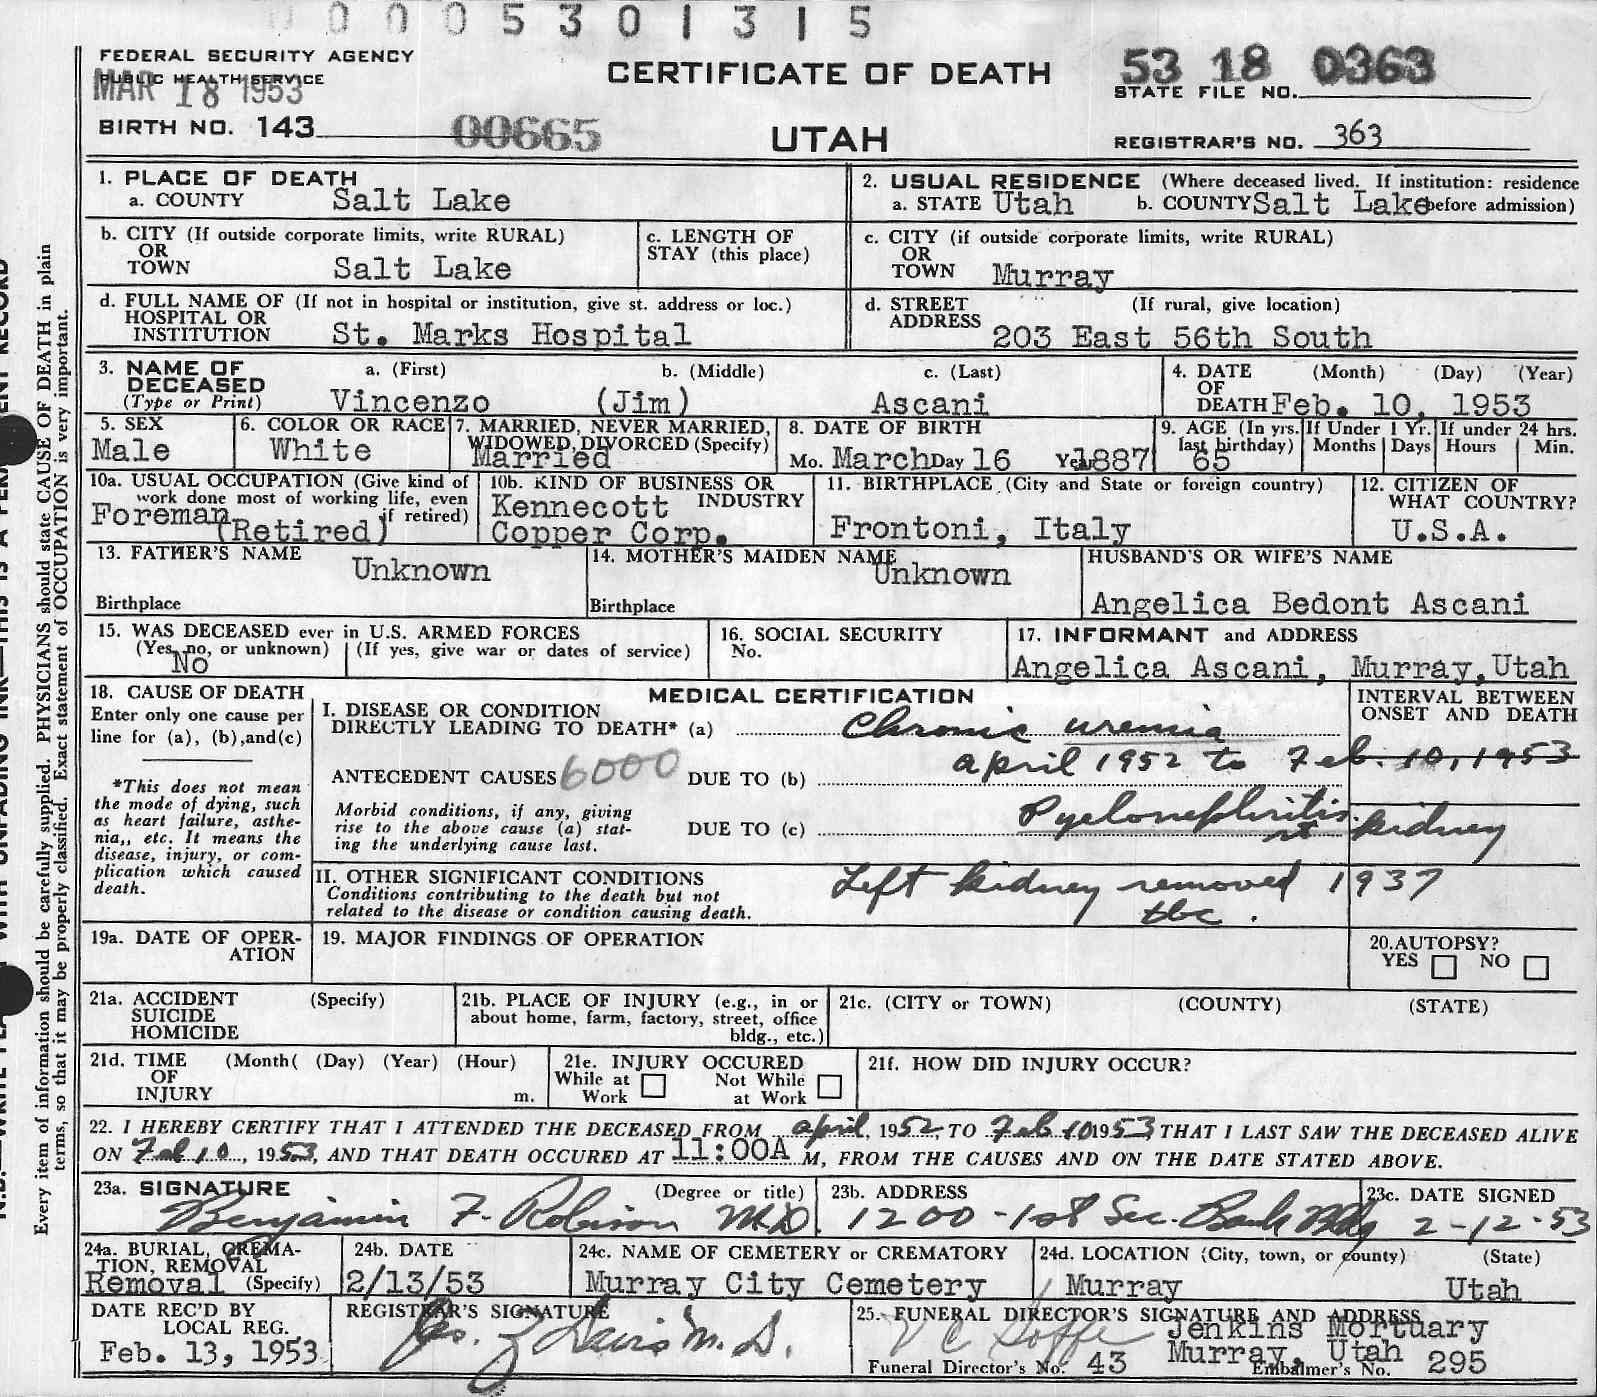 0 0 0 5 3 0 1 3 1 5
FEDERAL SECURITY AGENCY
PUBLIC HEALTH SERVICE
MAR 18 1953
CERTIFICATE OF DEATH
53 18 0363
STATE FILE NO.
BIRTH NO. 143
00665
UTAH
REGISTRAR'S NO. 363
1. PLACE OF DEATH
a. COUNTY Salt Lake
2. USUAL RESIDENCE (Where deceased lived. If institution: residence
a. STATE Utah b. COUNTY Salt Lake before admission)
b. CITY (If outside corporate limits, write RURAL)
OR
TOWN Salt Lake
c. LENGTH OF
STAY (this place)
c. CITY (if outside corporate limits, write RURAL)
OR
TOWN Murray
d. FULL NAME OF (If not in hospital or institution, give st. address or loc.)
HOSPITAL OR
INSTITUTION St. Marks Hospital
d. STREET (If rural, give location)
ADDRESS 203 East 56th South
3. NAME OF a. (First) b. (Middle) c. (Last)
DECEASED
(Type or Print) Vincenzo (Jim) Ascani
4. DATE (Month) (Day) (Year)
OF
DEATH Feb. 10, 1953
5. SEX
Male
6. COLOR OR RACE
White
7. MARRIED, NEVER MARRIED,
WIDOWED, DIVORCED (Specify)
Married
8. DATE OF BIRTH
Mo. March Day 16 Year 1887
9. AGE (In yrs.
last birthday)
65
If Under 1 Yr.
Months Days
If under 24 hrs.
Hours Min.
10a. USUAL OCCUPATION (Give kind of
work done most of working life, even
if retired)
Foreman
(Retired)
10b. KIND OF BUSINESS OR
INDUSTRY
Kennecott
Copper Corp.
11. BIRTHPLACE (City and State or foreign country)
Frontoni, Italy
12. CITIZEN OF
WHAT COUNTRY?
U.S.A.
13. FATHER'S NAME
Unknown
Birthplace
14. MOTHER'S MAIDEN NAME
Unknown
Birthplace
HUSBAND'S OR WIFE'S NAME
Angelica Bedont Ascani
15. WAS DECEASED ever in U.S. ARMED FORCES
(Yes, no, or unknown) (If yes, give war or dates of service)
No
16. SOCIAL SECURITY
No.
17. INFORMANT and ADDRESS
Angelica Ascani, Murray, Utah
18. CAUSE OF DEATH
Enter only one cause per
line for (a), (b), and (c)
*This does not mean
the mode of dying, such
as heart failure, asthe-
nia,, etc. It means the
disease, injury, or com-
plication which caused
death.
MEDICAL CERTIFICATION
INTERVAL BETWEEN
ONSET AND DEATH
I. DISEASE OR CONDITION
DIRECTLY LEADING TO DEATH* (a) Chronic uremia
april 1952 to Feb. 10, 1953
ANTECEDENT CAUSES 6000 DUE TO (b)
Morbid conditions, if any, giving
rise to the above cause (a) stat-
ing the underlying cause last.
DUE TO (c) Pyelonephritis rt kidney
II. OTHER SIGNIFICANT CONDITIONS
Conditions contributing to the death but not
related to the disease or condition causing death.
Left kidney removed 1937
tbc.
19a. DATE OF OPER-
ATION
19. MAJOR FINDINGS OF OPERATION
20. AUTOPSY?
YES NO
21a. ACCIDENT (Specify)
SUICIDE
HOMICIDE
21b. PLACE OF INJURY (e.g., in or
about home, farm, factory, street, office
bldg., etc.)
21c. (CITY or TOWN) (COUNTY) (STATE)
21d. TIME (Month( (Day) (Year) (Hour)
OF
INJURY m.
21e. INJURY OCCURED
While at Work Not While at Work
21f. HOW DID INJURY OCCUR?
22. I HEREBY CERTIFY THAT I ATTENDED THE DECEASED FROM april, 1952, TO Feb 10 1953, THAT I LAST SAW THE DECEASED ALIVE
ON Feb 10, 1953, AND THAT DEATH OCCURED AT 11:00A M, FROM THE CAUSES AND ON THE DATE STATED ABOVE.
23a. SIGNATURE (Degree or title)
Benjamin F. Robison M.D.
23b. ADDRESS
1200 - 1st Sec. Bank Bldg
23c. DATE SIGNED
2-12-53
24a. BURIAL, CREMA-
TION, REMOVAL
Removal (Specify)
24b. DATE
2/13/53
24c. NAME OF CEMETERY or CREMATORY
Murray City Cemetery
24d. LOCATION (City, town, or county) (State)
Murray Utah
DATE REC'D BY
LOCAL REG.
Feb. 13, 1953
REGISTRAR'S SIGNATURE
Davis M.D.
25. FUNERAL DIRECTOR'S SIGNATURE AND ADDRESS
Jenkins Mortuary
Murray, Utah
Funeral Director's No. 43 Embalmer's No. 295
Every item of information should be carefully supplied. PHYSICIANS should state CAUSE OF DEATH in plain
terms, so that it may be properly classified. Exact statement of OCCUPATION is very important.